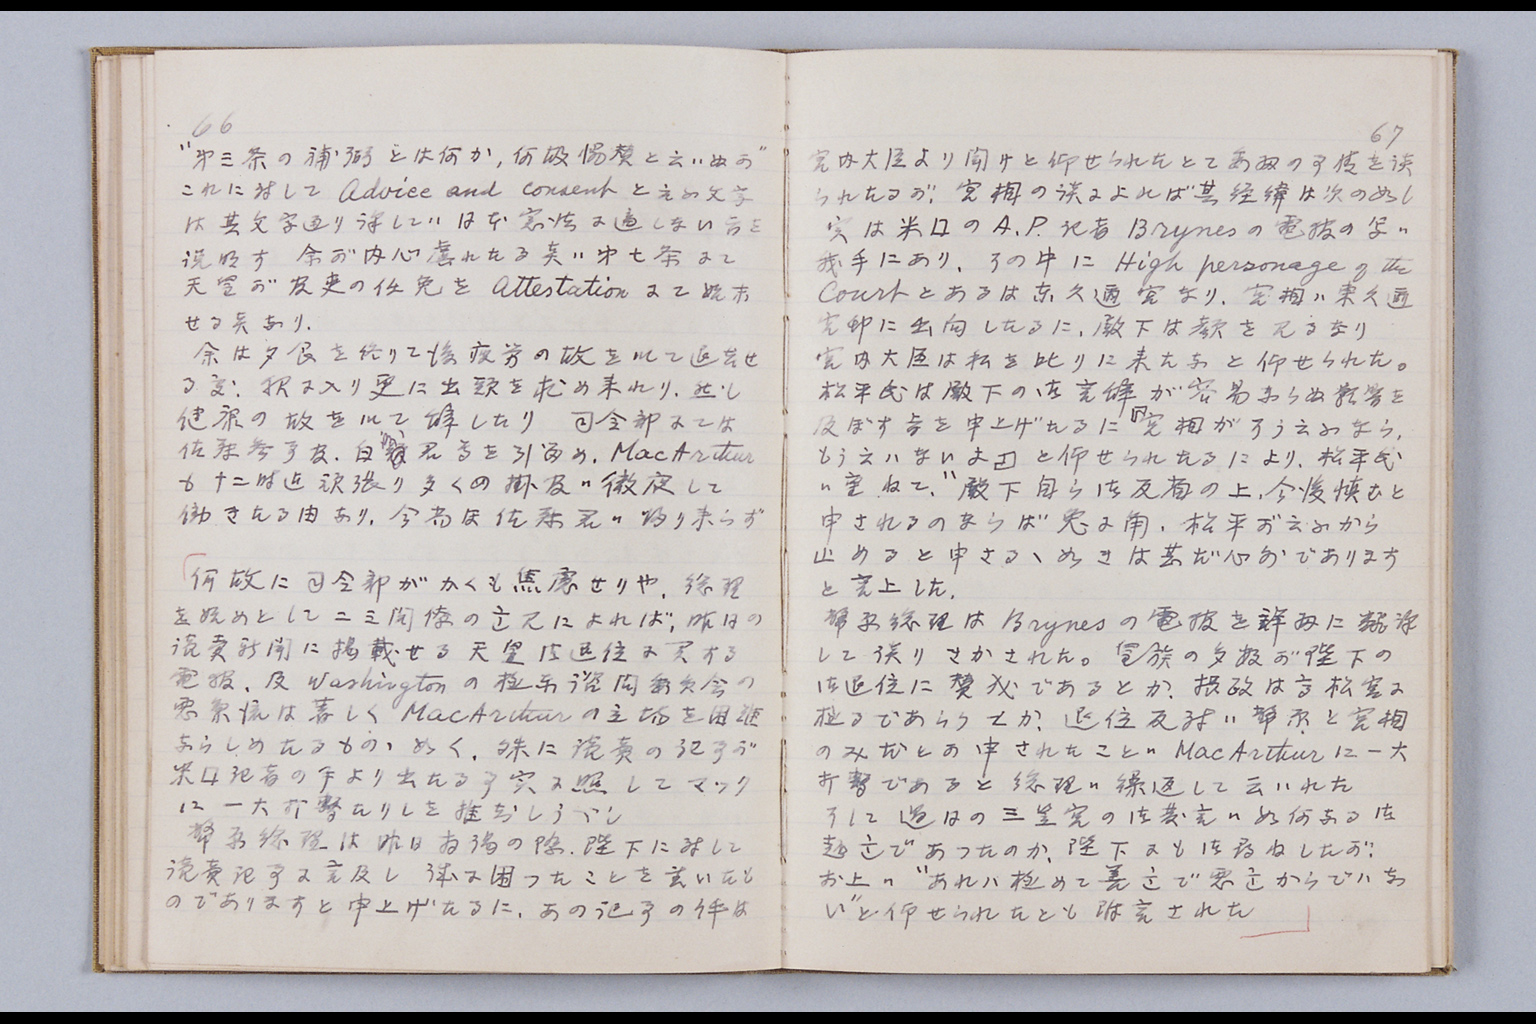 66
"第三条の補弼とは何か,何故協賛と云はぬか"
これに対して Advice and consent と云ふ文字
は其文字通り訳しては日本憲法に適しない旨を
説明す 余が内心虞れたる点は第七条にて
天皇が官吏の任免を Attestation にて始末
せる点あり.
余は夕食を終りて後疲労の故を以て退出せ
る 更に出頭を求め来れり. 然し
健康の故を以て帰したり 司令部にては
佐藤参事官. 白洲君等を引留め. MacArthur
も十二時迄頑張り多くの掛員は徹夜して
働きたる由あり. 今朝は佐藤君は帰り来らず
何故に司令部がかくも焦慮せりや. 総理
を始めとして二三閣僚の意見によれば, 昨日の
読売新聞に掲載せる天皇御退位に関する
電報. 及 Washington の極東諮問委員会の
空気は著しく MacArthur の立場を困難
ならしめたるものゝ如く. 殊に読売の記事が
米国記者の手より出たる事実に照してマック
に一大打撃たりしを推知しうべし
幣原総理は昨日拝謁の際. 陛下に対して
読売記事に言及し 誠に困ったことを書いたも
のでありますと申上げたるに、あの記事の件は
67
宮内大臣より聞けと仰せられたとて
られたるが, 宮相の談によれば其経緯は次の如し
実は米国の A.P. 記者 Brynes の電報の写は
我手にあり, その中に High personage of the
Court とあるは東久邇宮なり. 宮相は東久邇
宮邸に出向したるに、殿下は顔を見るなり
宮内大臣は私を叱りに来たなと仰せられた。
松平氏は殿下の御言葉が容易ならぬ影響を
及ぼす旨を申上げたるに『宮相がそう云ふなら,
もう云はないよ』と仰せられたるにより, 松平氏
は重ねて, "殿下自ら御反省の上,今後慎むと
申されるのならば兎に角, 松平が云ふから
止めると申さるゝ如きは甚だ心外であります
と言上した.
幣原総理は Brynes の電報を詳細に翻訳
して読みきかされた。皇族の多数が陛下の
御退位に賛成であるとか, 摂政は高松宮に
極るであらうとか, 退位反対は幣原と宮相
のみだとか申されたことは MacArthur に一大
打撃であると総理は繰返して云はれた
そして過日の三笠宮の御発言は如何なる御
趣意であったのか, 陛下にも御尋ねしたが,
お上は "あれは極めて善意で悪意からではな
い"と仰せられたとも附言された